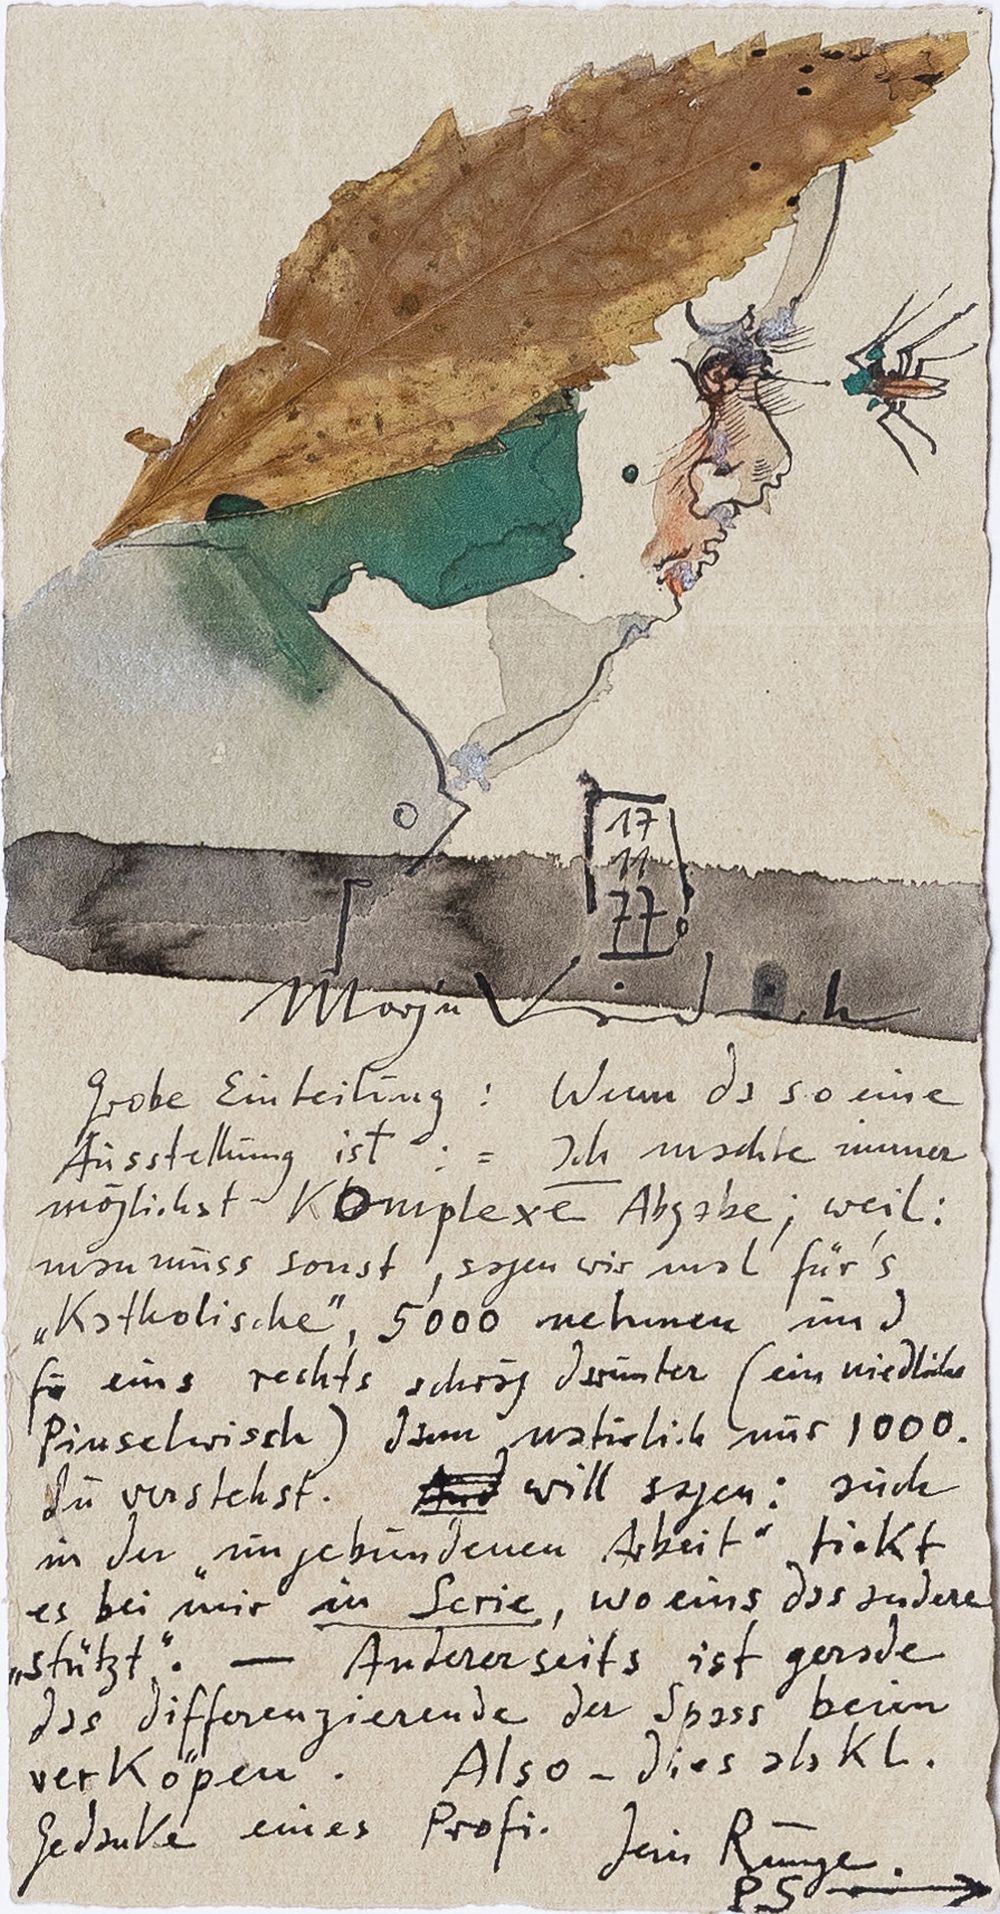 17
11
77
Grobe Einteilung : Wenn da so eine
Ausstellung ist : = Ich möchte immer
möglichst Komplexe Abgabe; weil:
man muss sonst, sagen wir mal für's
„Katholische", 5000 nehmen und
für eins rechts schräg darunter (ein niedlicher
Pinselwisch) dann natürlich nur 1000.
Du verstehst. will sagen: auch
in der „ungebundenen Arbeit" tickt
es bei mir in Serie, wo eins das andere
„stützt". — Andererseits ist gerade
das differenzierende der Spass beim
verKöpen. Also – dies als Kl.
Gedanke eines Profi. Jein Runge.
PS →